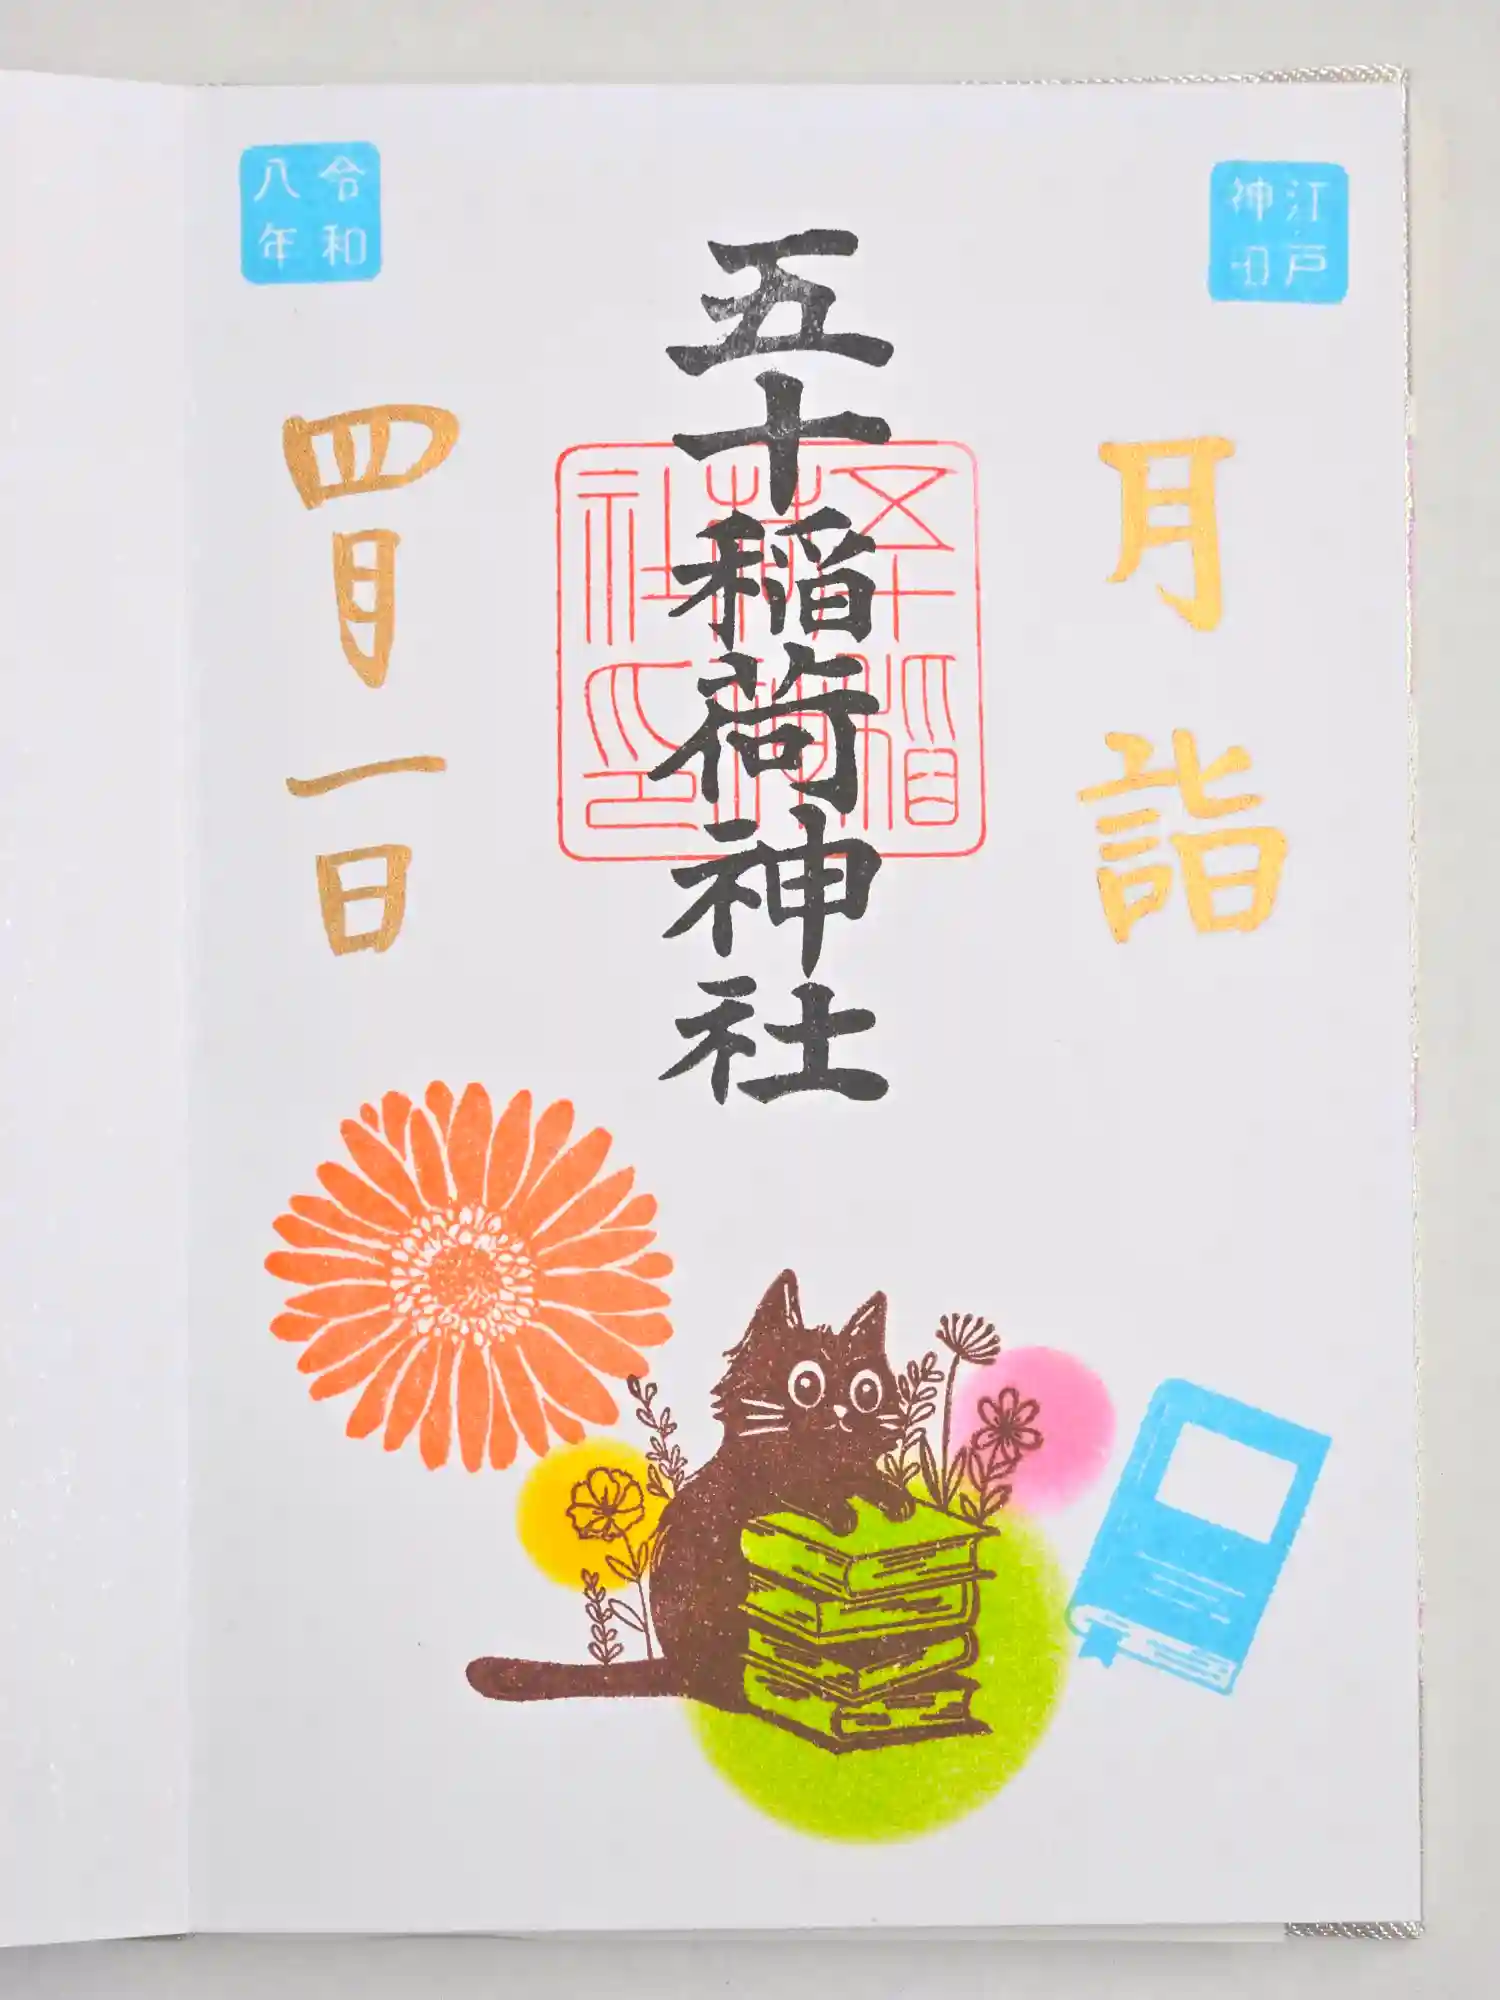 江戸
神田
月詣
五十稲荷神社
五十稲荷神社印
令和
八年
四月一日